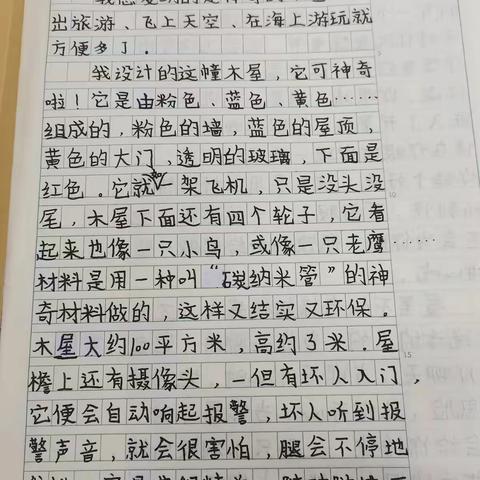 出旅游、飞上天空、在海上游玩就
方便多了。
我设计的这幢木屋,它可神奇
啦!它是由粉色、蓝色、黄色……
组成的,粉色的墙,蓝色的屋顶,
黄色的大门,透明的玻璃,下面是
红色。它就 架飞机,只是没头没
尾,木屋下面还有四个轮子,它看
起来也像一只小鸟,或像一只老鹰……
材料是用一种叫“碳纳米管”的神
奇材料做的,这样又结实又环保。
木屋大约100平方米,高约3米.屋
檐上还有摄像头,一但有坏人入门,
它便会自动响起报警,坏人听到报
警声音,就会很害怕,腿会不停地